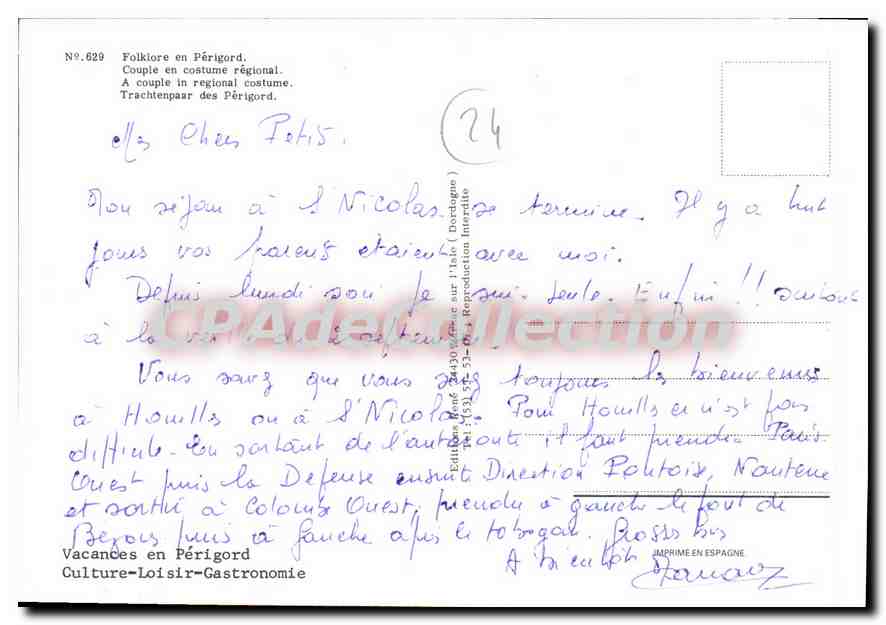 Nº.629 Folklore en Périgord.
Couple en costume régional.
A couple in regional costume.
Trachtenpaar des Périgord.
24
Mes Chers Petits.
Mon séjour à St Nicolas se termine. Il y a huit
jours vos parents étaient avec moi.
Depuis lundi soir je suis seule. Enfin !!
à la
Vous savez que vous serez toujours les bienvenus
à Houilles ou à St Nicolas. Pour Houilles ce n'est pas
difficile. En sortant de l'autoroute il faut prendre Paris
Ouest puis la Défense ensuite Direction Pontoise, Nanterre
et sortie à Colombe Ouest, prendre à gauche le pont de
Bezons puis à gauche après le tobogan. Grosses bises
A bientôt
Editions René
sur l'Isle ( Dordogne )
Reproduction Interdite
CPAdeCollection
Vacances en Périgord
Culture-Loisir-Gastronomie
IMPRIMÉ EN ESPAGNE